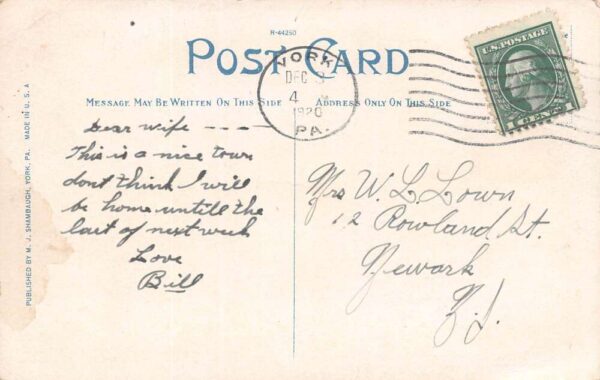 R-44250
POST CARD
MESSAGE MAY BE WRITTEN ON THIS SIDE
ADDRESS ONLY ON THIS SIDE
YORK
DEC
4
1920
PA.
U.S. POSTAGE
Dear Wife ----
This is a nice town
dont think I will
be home untill the
last of next week
Love
Bill
Mrs W. L. Lown
12 Rowland St.
Newark
N.J.
PUBLISHED BY M. J. SHAMBAUGH, YORK, PA. MADE IN U. S. A